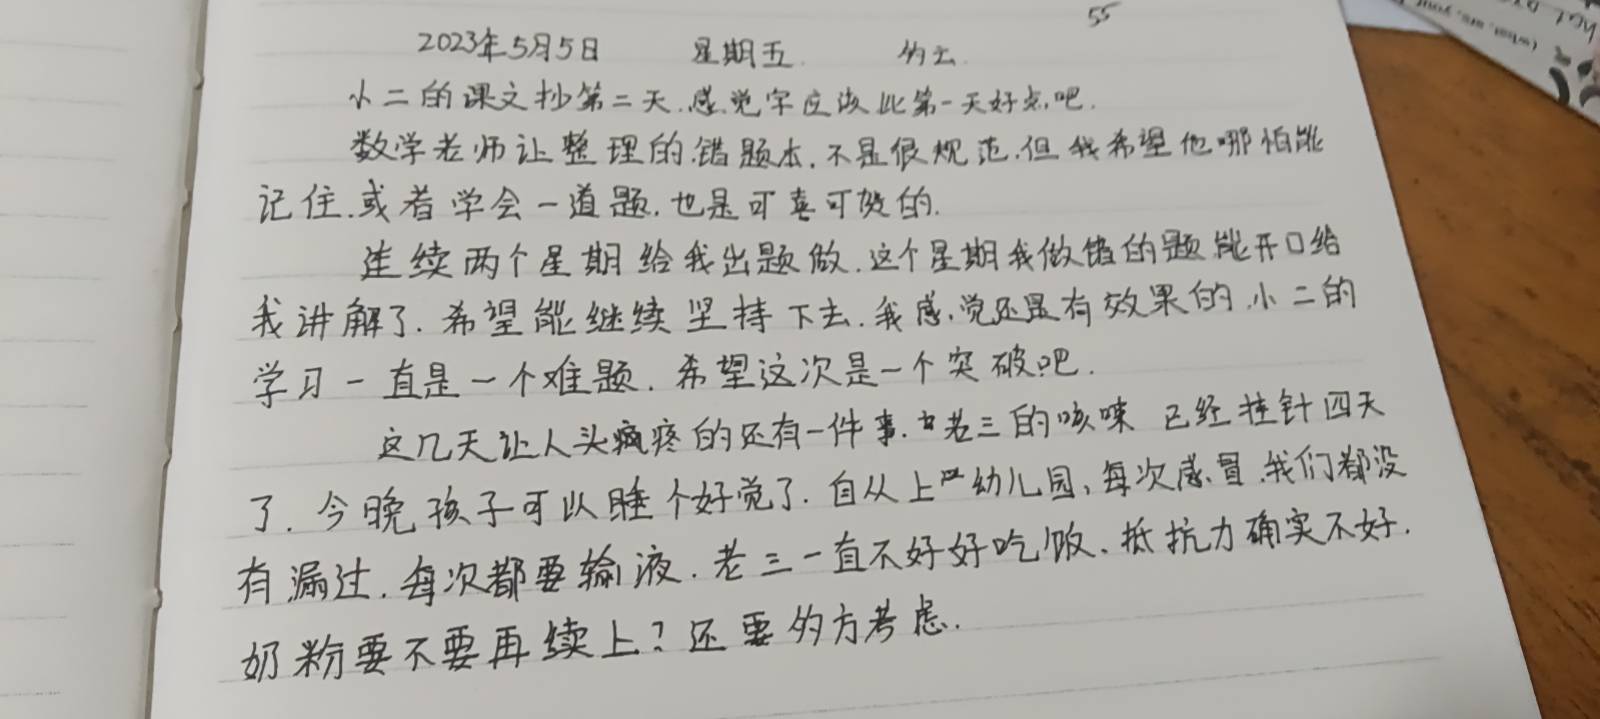 55
2023年5月5日 星期五. 多云.
小二的课文抄第二天.感觉字应该比第一天好点吧.
数学老师让整理的.错题本.不是很规范.但我希望他哪怕能
记住.或者学会一道题.也是可喜可贺的.
连续两个星期给我出题做.这个星期我做错的题.能开口给
我讲解了.希望能继续坚持下去.我感觉还是有效果的.小二的
学习一直是一个难题.希望这次是一个突破吧.
这几天让人头疼的还有一件事.老三的咳嗽 已经挂针四天
了.今晚孩子可以睡个好觉了.自从上幼儿园,每次感冒.我们都没
有漏过.每次都要输液.老三一直不好好吃饭.抵抗力确实不好.
奶粉要不要再续上?还要多方考虑.